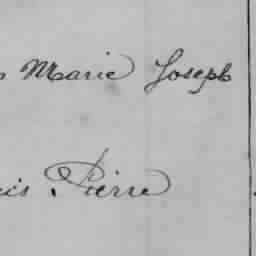 Marie Joseph
Pierre